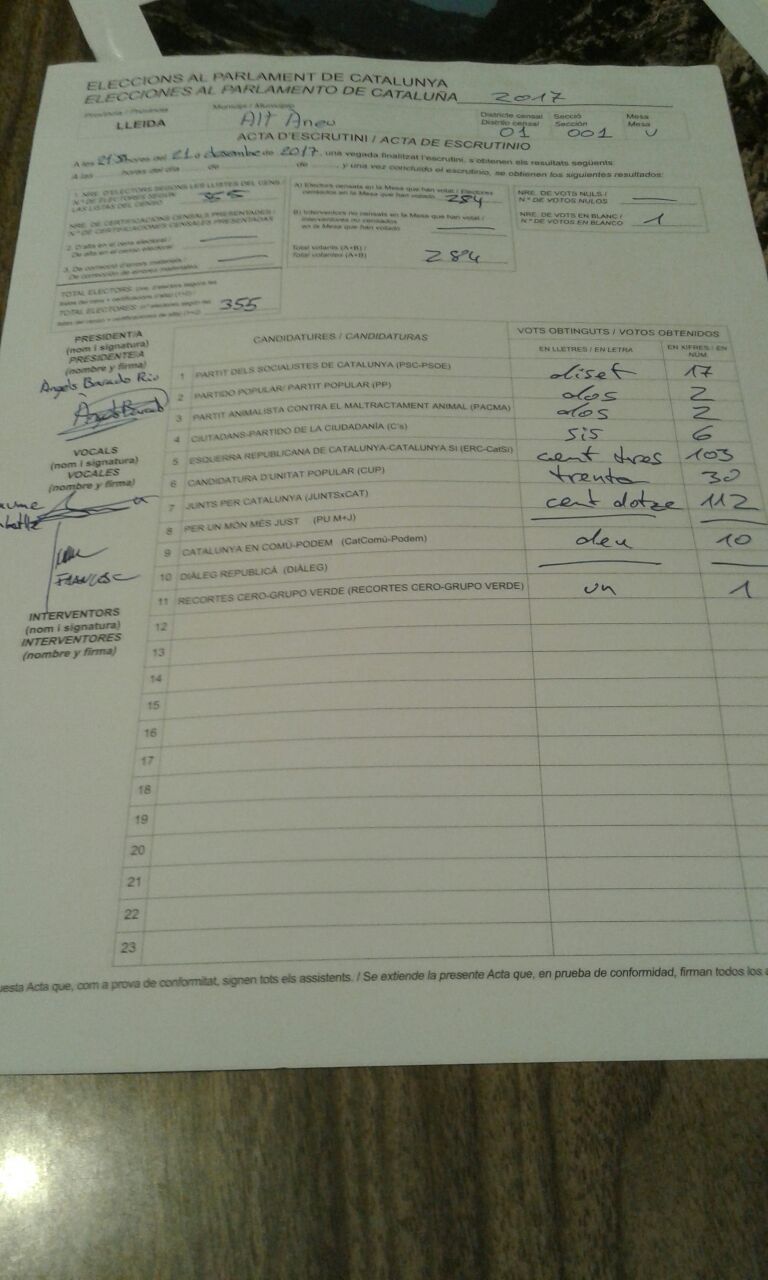 ELECCIONS AL PARLAMENT DE CATALUNYA
ELECCIONES AL PARLAMENTO DE CATALUÑA 2017
Província / Provincia
LLEIDA
Municipi / Municipio
Alt Àneu
Districte censal
Distrito censal
01
Secció
Sección
001
Mesa
Mesa
U
ACTA D'ESCRUTINI / ACTA DE ESCRUTINIO
A les hores del 21 de desembre de 2017, una vegada finalitzat l'escrutini, s'obtenen els resultats següents:
A las horas del día de de , y una vez concluido el escrutinio, se obtienen los siguientes resultados:
1. NRE. D'ELECTORS SEGONS LES LLISTES DEL CENS /
N.º DE ELECTORES SEGÚN
LAS LISTAS DEL CENSO
355
NRE. DE CERTIFICACIONS CENSALS PRESENTADES /
N.º DE CERTIFICACIONES CENSALES PRESENTADAS
2. D'alta en el cens electoral /
De alta en el censo electoral
3. De correcció d'errors materials /
De corrección de errores materiales
TOTAL ELECTORS
TOTAL ELECTORES
355
A) Electors censats en la Mesa que han votat / Electores
censados en la Mesa que han votado 284
B) Interventors no censats en la Mesa que han votat /
Interventores no censados
en la Mesa que han votado
Total votants (A+B) /
Total votantes (A+B)
284
NRE. DE VOTS NULS /
N.º DE VOTOS NULOS
NRE. DE VOTS EN BLANC /
N.º DE VOTOS EN BLANCO
1
PRESIDENT/A
(nom i signatura)
PRESIDENTE/A
(nombre y firma)
Àngels
VOCALS
(nom i signatura)
VOCALES
(nombre y firma)
FRANCESC
INTERVENTORS
(nom i signatura)
INTERVENTORES
(nombre y firma)
CANDIDATURES / CANDIDATURAS
VOTS OBTINGUTS / VOTOS OBTENIDOS
EN LLETRES / EN LETRA
EN XIFRES / EN NÚM.
1 PARTIT DELS SOCIALISTES DE CATALUNYA (PSC-PSOE) diset 17
2 PARTIDO POPULAR/ PARTIT POPULAR (PP) dos 2
3 PARTIT ANIMALISTA CONTRA EL MALTRACTAMENT ANIMAL (PACMA) dos 2
4 CIUTADANS-PARTIDO DE LA CIUDADANÍA (C's) sis 6
5 ESQUERRA REPUBLICANA DE CATALUNYA-CATALUNYA SÍ (ERC-CatSí) cent tres 103
6 CANDIDATURA D'UNITAT POPULAR (CUP) trenta 30
7 JUNTS PER CATALUNYA (JUNTSxCAT) cent dotze 112
8 PER UN MÓN MÉS JUST (PU M+J)
9 CATALUNYA EN COMÚ-PODEM (CatComú-Podem) deu 10
10 DIÀLEG REPUBLICÀ (DIÀLEG)
11 RECORTES CERO-GRUPO VERDE (RECORTES CERO-GRUPO VERDE) un 1
12
13
14
15
16
17
18
19
20
21
22
23
Acta que, com a prova de conformitat, signen tots els assistents. / Se extiende la presente Acta que, en prueba de conformidad, firman todos los